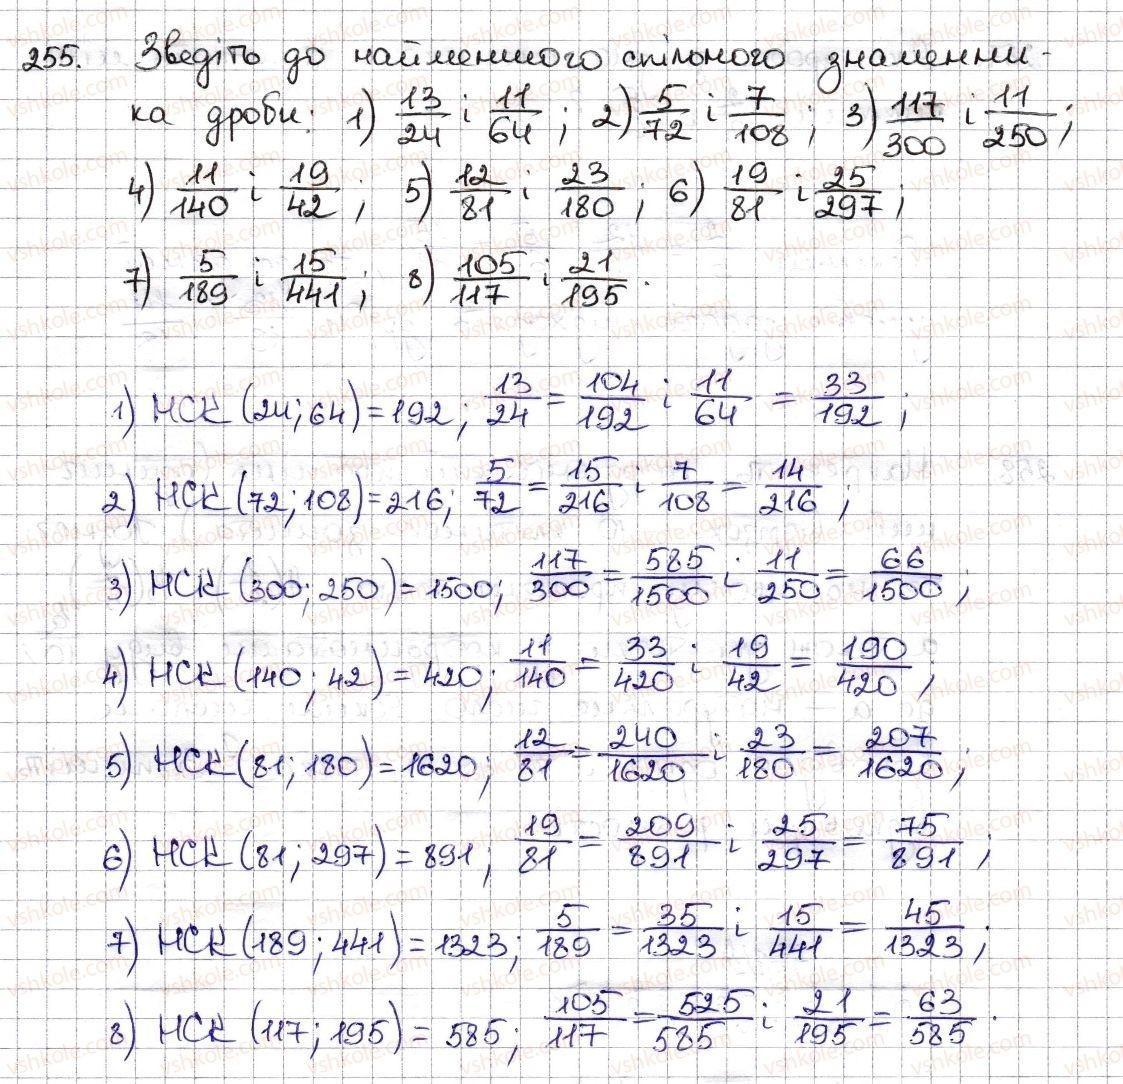 255. Зведіть до найменшого спільного знаменни-
ка дроби: 1) 13/24 і 11/64; 2) 5/72 і 7/108; 3) 117/300 і 11/250;
4) 11/140 і 19/42; 5) 12/81 і 23/180; 6) 19/81 і 25/297;
7) 5/189 і 15/441; 8) 105/117 і 21/195.
1) НСК (24; 64) = 192; 13/24 = 104/192 і 11/64 = 33/192;
2) НСК (72; 108) = 216; 5/72 = 15/216 і 7/108 = 14/216;
3) НСК (300; 250) = 1500; 117/300 = 585/1500 і 11/250 = 66/1500;
4) НСК (140; 42) = 420; 11/140 = 33/420 і 19/42 = 190/420;
5) НСК (81; 180) = 1620; 12/81 = 240/1620 і 23/180 = 207/1620;
6) НСК (81; 297) = 891; 19/81 = 209/891 і 25/297 = 75/891;
7) НСК (189; 441) = 1323; 5/189 = 35/1323 і 15/441 = 45/1323;
8) НСК (117; 195) = 585; 105/117 = 525/585 і 21/195 = 63/585.